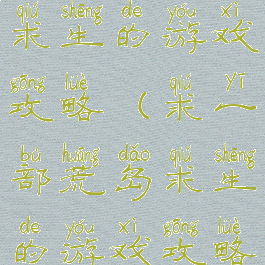 qiú shēng de yóu xì
求生的游戏
gōng lüè qiú yī
攻略（求一
bù huāng dǎo qiú shēng
部荒岛求生
de yóu xì gōng lüè
的游戏攻略